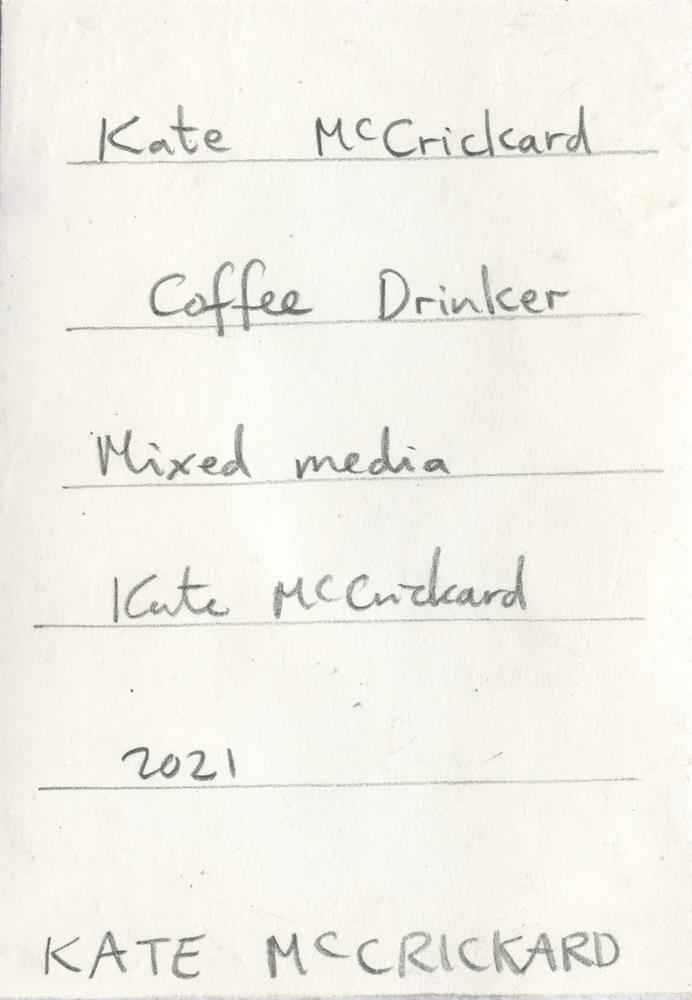 Kate McCrickard
Coffee Drinker
Mixed media
Kate McCrickard
2021
KATE McCRICKARD